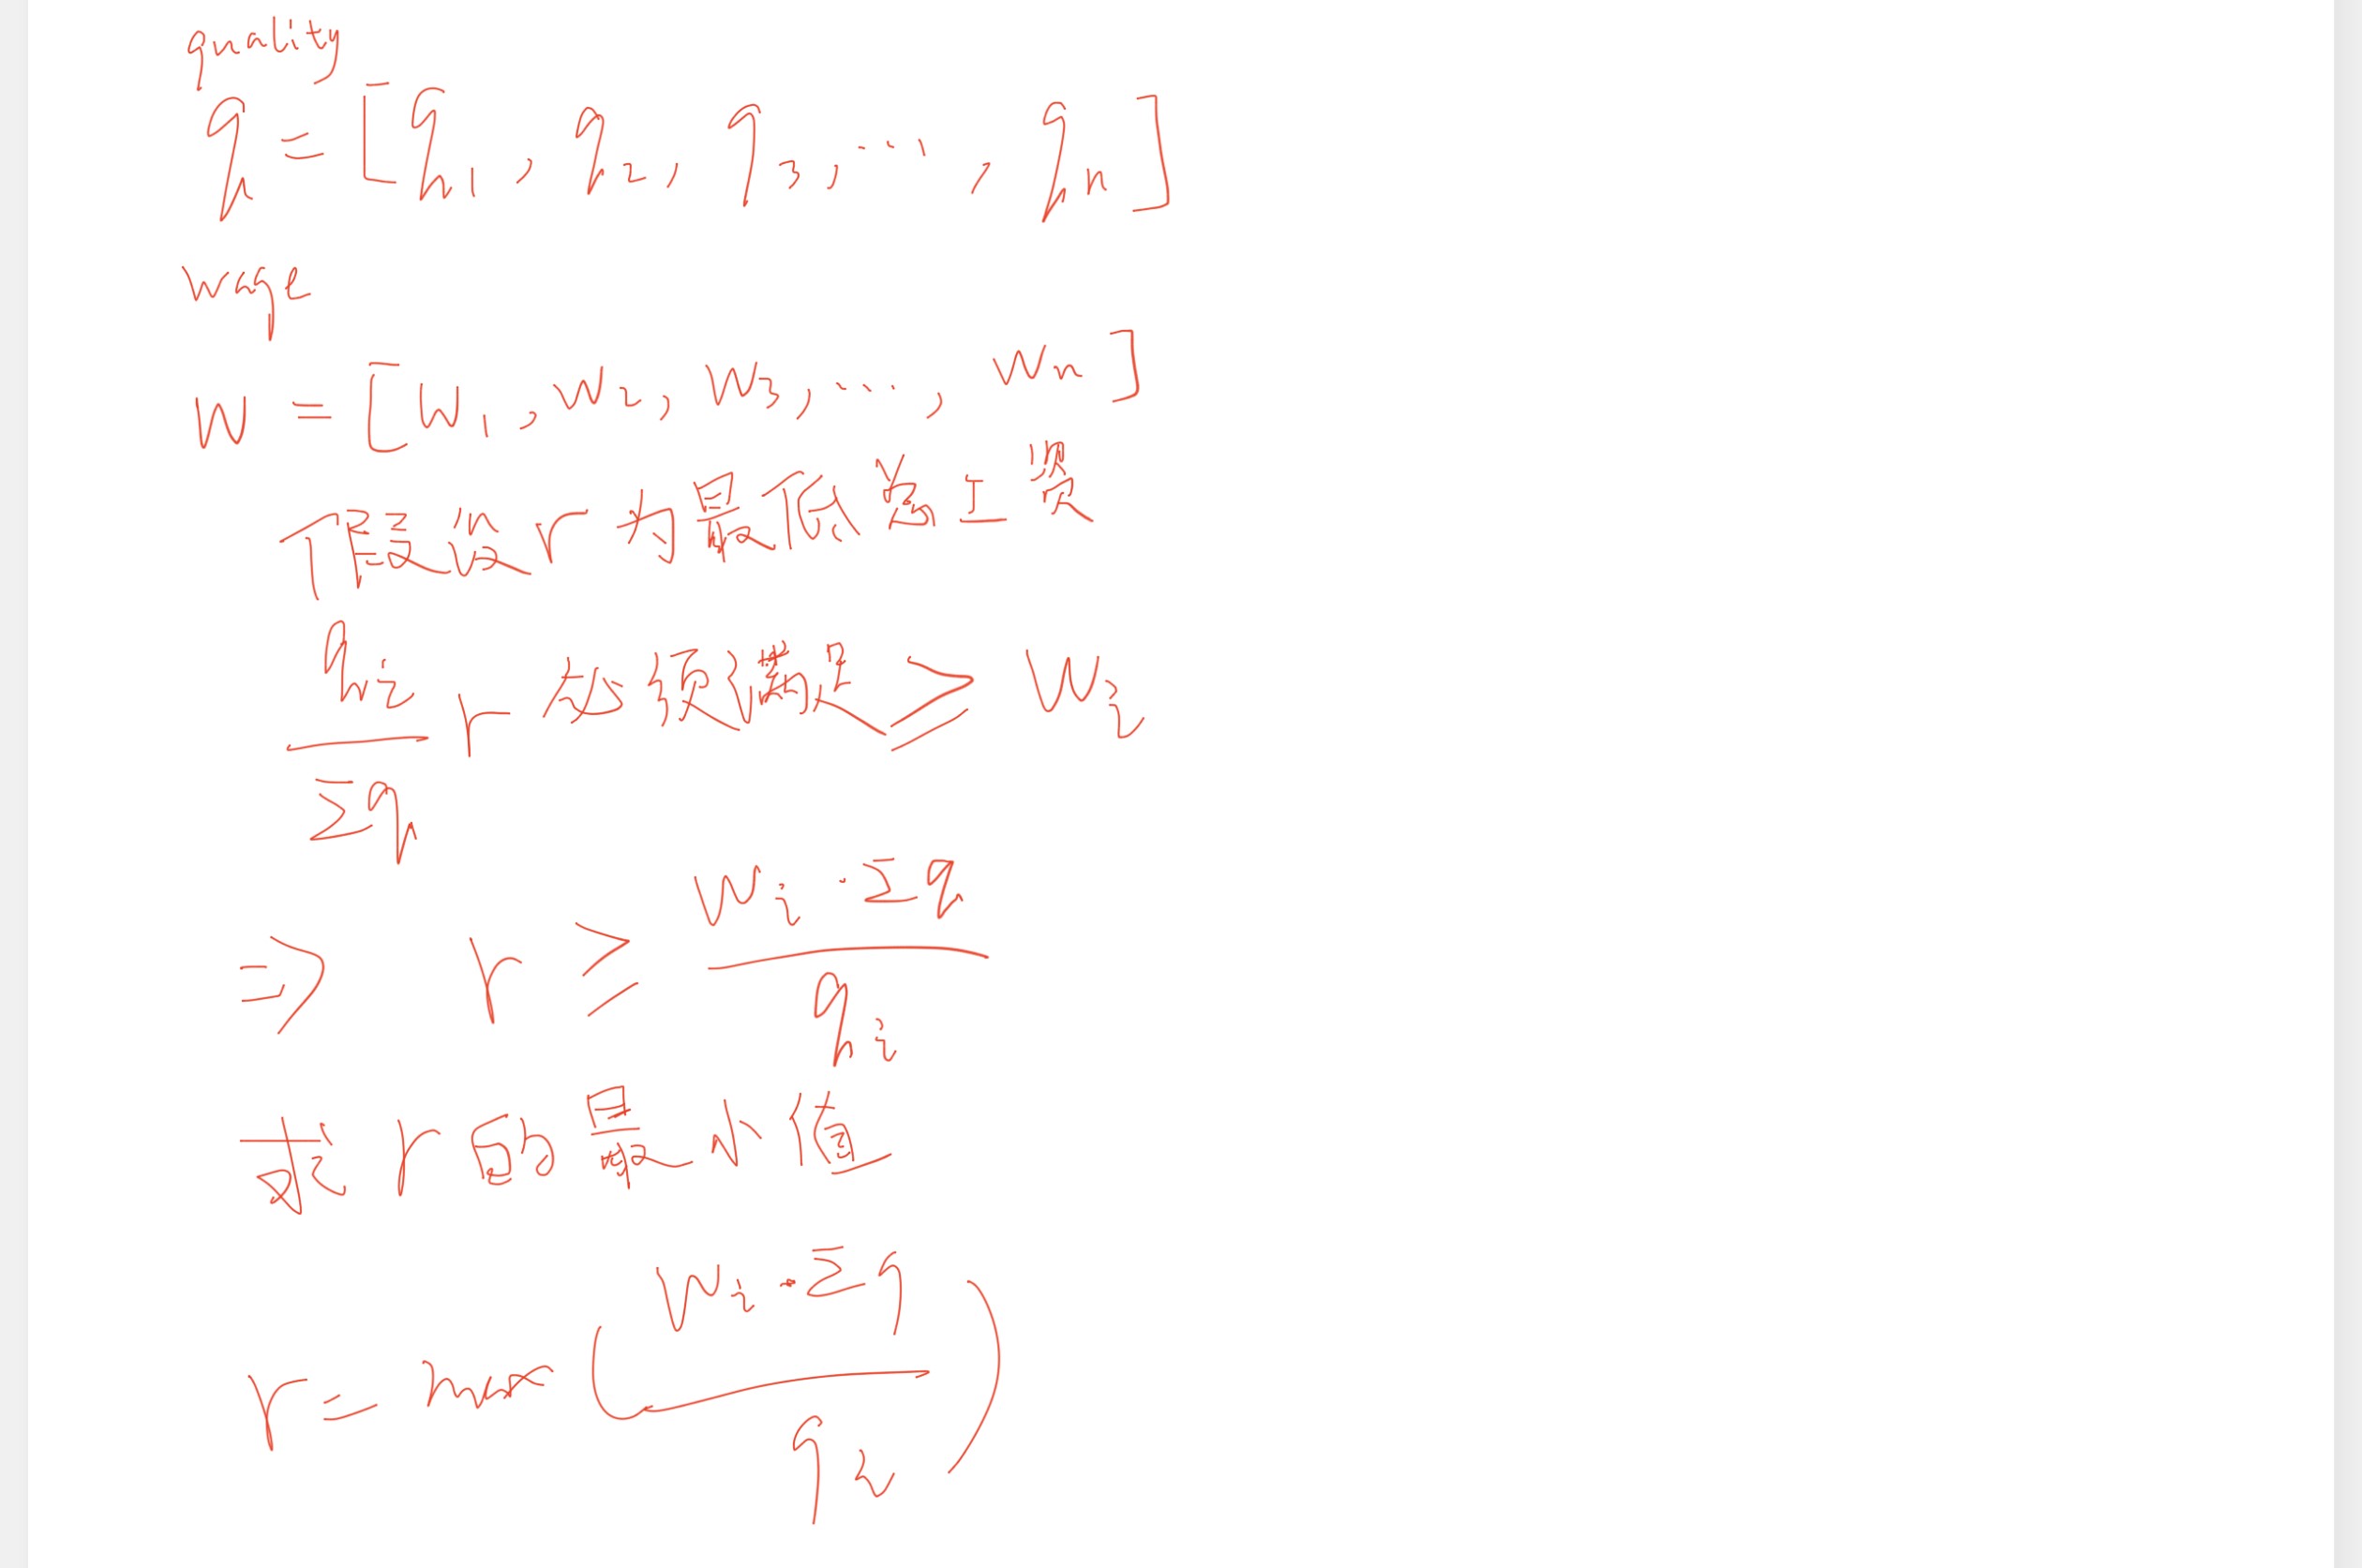 quality
q = [q₁, q₂, q₃, ..., qₙ]
wage
w = [w₁, w₂, w₃, ..., wₙ]
假设 r 为最低总工资
qᵢ/Σq r 必须满足 ≥ wᵢ
⇒ r ≥ wᵢ · Σq / qᵢ
求 r 的最小值
r = max (wᵢ · Σq / qᵢ)